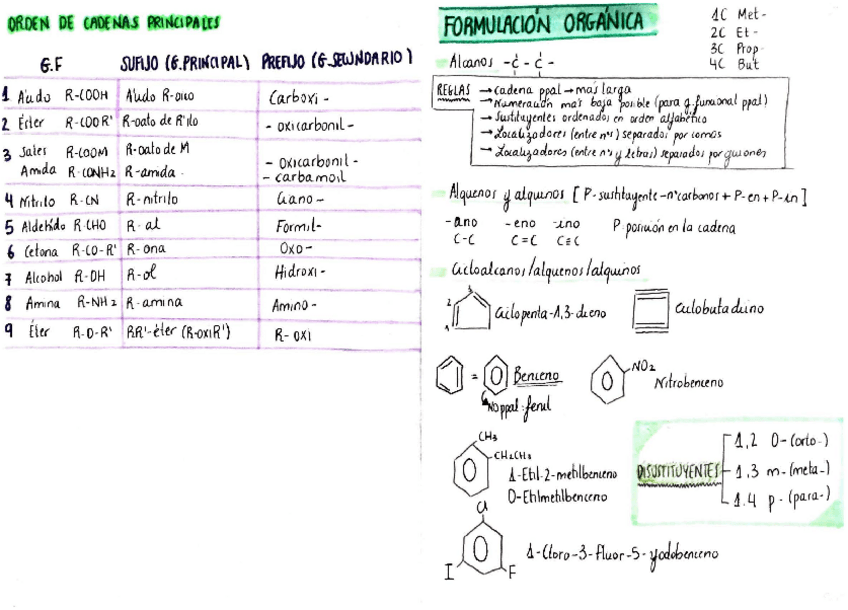 ORDEN DE CADENAS PRINCIPALES
G.F SUFIJO (G.PRINCIPAL) PREFIJO (G.SECUNDARIO)
1 Ácido R-COOH Ácido R-oico Carboxi-
2 Éster R-COOR' R-oato de R'ilo -oxicarbonil-
3 Sales R-COOM R-oato de M -oxicarbonil-
Amida R-CONH2 R-amida. -carbamoil
4 Nitrilo R-CN R-nitrilo Ciano-
5 Aldehído R-CHO R-al Formil-
6 Cetona R-CO-R' R-ona Oxo-
7 Alcohol R-OH R-ol Hidroxi-
8 Amina R-NH2 R-amina Amino-
9 Éter R-O-R' RR'-éter (R-oxiR') R-oxi
FORMULACIÓN ORGÁNICA
1C Met-
2C Et-
3C Prop-
4C But
Alcanos -C-C-
REGLAS → cadena ppal → más larga
→ Numeración más baja posible (para g.funcional ppal)
→ Sustituyentes ordenados en orden alfabético
→ Localizadores (entre nºs) separados por comas
→ Localizadores (entre nºs y letras) separados por guiones
Alquenos y alquinos [P-sustituyente-nºcarbonos + P-en + P-in]
-ano -eno -ino P: posición en la cadena
C-C C=C C≡C
Cicloalcanos/alquenos/alquinos
3
2
1
Ciclopenta-1,3-dieno
Ciclobutadiino
= Benceno
No ppal: fenil
NO2
Nitrobenceno
CH3
CH2CH3
1-Etil-2-metilbenceno
O-Etilmetilbenceno
DISUSTITUYENTES
1,2 O-(orto-)
1,3 m-(meta-)
1,4 p-(para-)
Cl
I
F
1-Cloro-3-fluor-5-yodobenceno